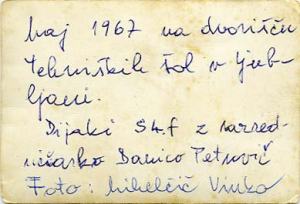 Maj 1967 na dvorišču
tehniških šol v Ljub-
ljani.
Dijaki S4.f z razred-
ničarko Danico Petrovič
Foto: Mihelčič Vinko